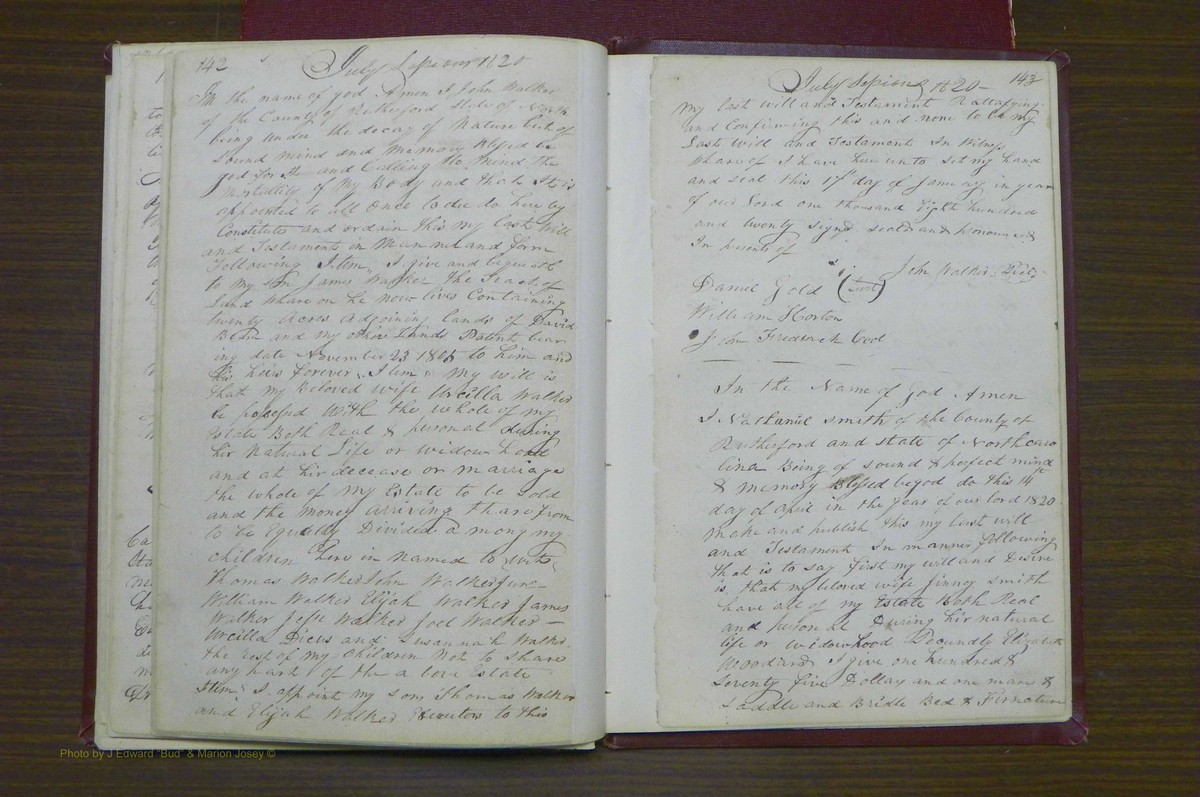 142 July Sessions 1820
In the name of god Amen I John Walker
of the County of Rutherford State of North
being under the decay of Nature but of
Sound mind and memory blessed be
god for it and Calling to mind the
Mortality of My Body and that it is
appointed to all once to die do hereby
Constitute and ordain this my last will
and Testament in Manner and form
following Item I give and bequeath
to my son James Walker the Tract of
Land whare on he now lives Containing
twenty acres adjoining lands of David
and my other Lands Patent bear
ing date November 23 1805 to him and
his heirs forever Item My will is
that my Beloved wife Urcilla Walker
be possessed With the whole of my
Estate Both Real & personal during
hir Natural Life or widow hood
and at hir decease or marriage
the whole of my Estate to be sold
and the money arriving thare from
to be Equelly Divided a mong my
children here in named to wit
Thomas Walker John Walker Junr
William Walker Elijah Walker James
Walker Jesse Walker Joel Walker
Urcilla Dicus and Susannah Walker
the rest of my children not to share
any part of the a bove Estate
Item I appoint my sons Thomas Walker
and Elijah Walker Executors to this
July Sessions 1820 143
My last will and Testament Rattafying
and Confirming this and none to be my
Last Will and Testament In Witness
whare of I have here unto set my hand
and seal this 17th day of January in year
of our Lord one thousand Eight hundred
and twenty signd seald and
In presents of
John Walker
Daniel Gold (Jurt)
William Horton
John Frederick Cool
In the Name of God Amen
I Nathaniel Smith of the County of
Rutherford and state of North caro
lina Being of sound & perfect mind
& memory Blessed be god do this 14th
day of april in the year of our lord 1820
Make and publish this my last will
and Testament In manner following
that is to say first my will and Desire
is that my beloved wife finney smith
have all of my Estate Both Real
and personal During hir natural
life or widowhood Secundly Elizabeth
Woodard I give one hundred &
Seventy five Dollars and one mare &
Saddle and Bridle Bed & Firnature
Photo by J Edward "Bud" & Marion Josey ©